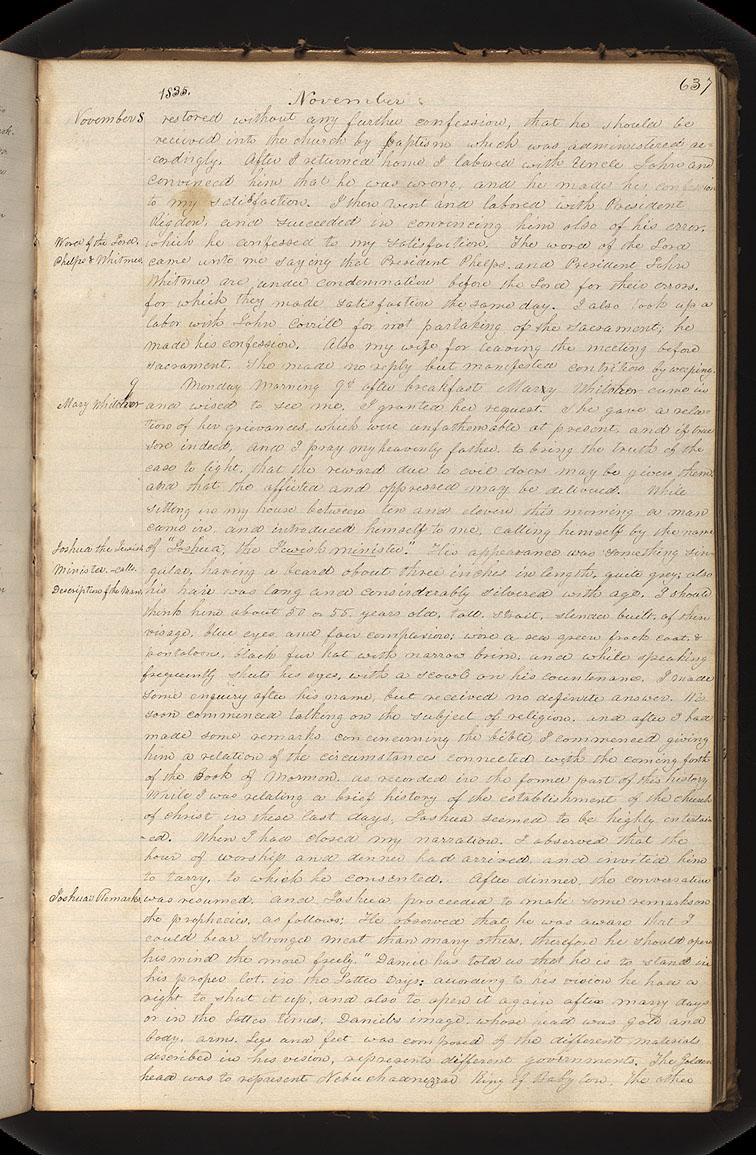 1835.
November
637
November 8 restored without any further confession, that he should be
received into the church by baptism which was administered ac-
cordingly. After I returned home I labored with Uncle John and
convinced him that he was wrong, and he made his confession
to my satisfaction. I then went and labored with President
Rigdon, and succeeded in convincing him also of his error,
Word of the Lord, which he confessed to my satisfaction. The word of the Lord
Phelps & Whitmer, came unto me saying that President Phelps, and President John
Whitmer are under condemnation before the Lord for their errors.
for which they made satisfaction the same day. I also took up a
labor with John Corrill for not partaking of the sacrament; he
made his confession. Also my wife for leaving the meeting before
sacrament. She made no reply but manifested contrition by weeping.
9 Monday Morning 9th after breakfast Mary Whitcher came in
Mary Whitcher and wised to see me. I granted her request. She gave a rela-
tion of her grievances which were unfathomable at present, and if true
sore indeed, and I pray my heavenly father to bring the truth of the
case to light, that the reward due to evil doers may be given them,
and that the afflicted and oppressed may be delivered. While
sitting in my house between ten and eleven this morning a man
came in, and introduced himself to me, calling himself by the name
Joshua the Jewish of "Joshua, the Jewish minister." His appearance was something sin-
Minister. calls. gular, having a beard about three inches in length, quite grey; also
Description of the Man, his hair was long and considerably silvered with age. I should
think him about 50 or 55 years old, tall, strait, slender built, of thin
visage, blue eyes, and fair complexion; wore a sea green frock coat, &
pantaloons, black fur hat with narrow brim, and while speaking
frequently shuts his eyes, with a scowl on his countenance. I made
some enquiry after his name, but received no definite answer. We
soon commenced talking on the subject of religion, and after I had
made some remarks concerning the bible, I commenced giving
him a relation of the circumstances connected with the coming forth
of the Book of Mormon, as recorded in the former part of this history
While I was relating a brief history of the establishment of the church
of Christ in these last days, Joshua seemed to be highly entertain
-ed. When I had closed my narration, I observed that the
hour of worship and dinner had arrived, and invited him
to tarry, to which he consented. After dinner, the conversation
Joshuas Remarks, was resumed, and Joshua proceeded to make some remarks on
the prophecies, as follows: He observed that he was aware that I
could bear stronger meat than many others, therefore he should open
his mind the more freely. "Daniel has told us that he is to stand in
his proper lot, in the Latter Days; according to his vision he had a
right to shut it up, and also to open it again after many days
or in the Latter times. Daniels image, whose head was gold and
body, arms, legs and feet was composed of the different materials
described in his vision, represents different governments. The Golden
head was to represent Nebuchadnezzar King of Babylon, the other